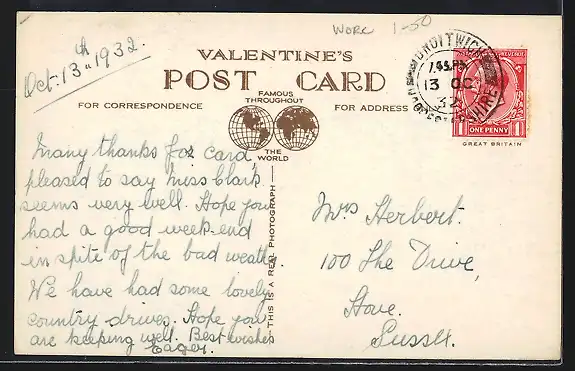 WORC 1-50
Oct. 13th 1932.
VALENTINE'S
POST CARD
FAMOUS
THROUGHOUT
THE
WORLD
FOR CORRESPONDENCE
FOR ADDRESS
DROITWICH
13 OC
32
POSTAGE REVENUE
ONE PENNY
GREAT BRITAIN
THIS IS A REAL PHOTOGRAPH
Many thanks for card,
pleased to say Miss Clark
seems very well. Hope you
had a good week-end
in spite of the bad weather.
We have had some lovely
country drives. Hope you
are keeping well. Best wishes
Eager.
Mrs Herbert.
100 The Drive,
Hove.
Sussex.